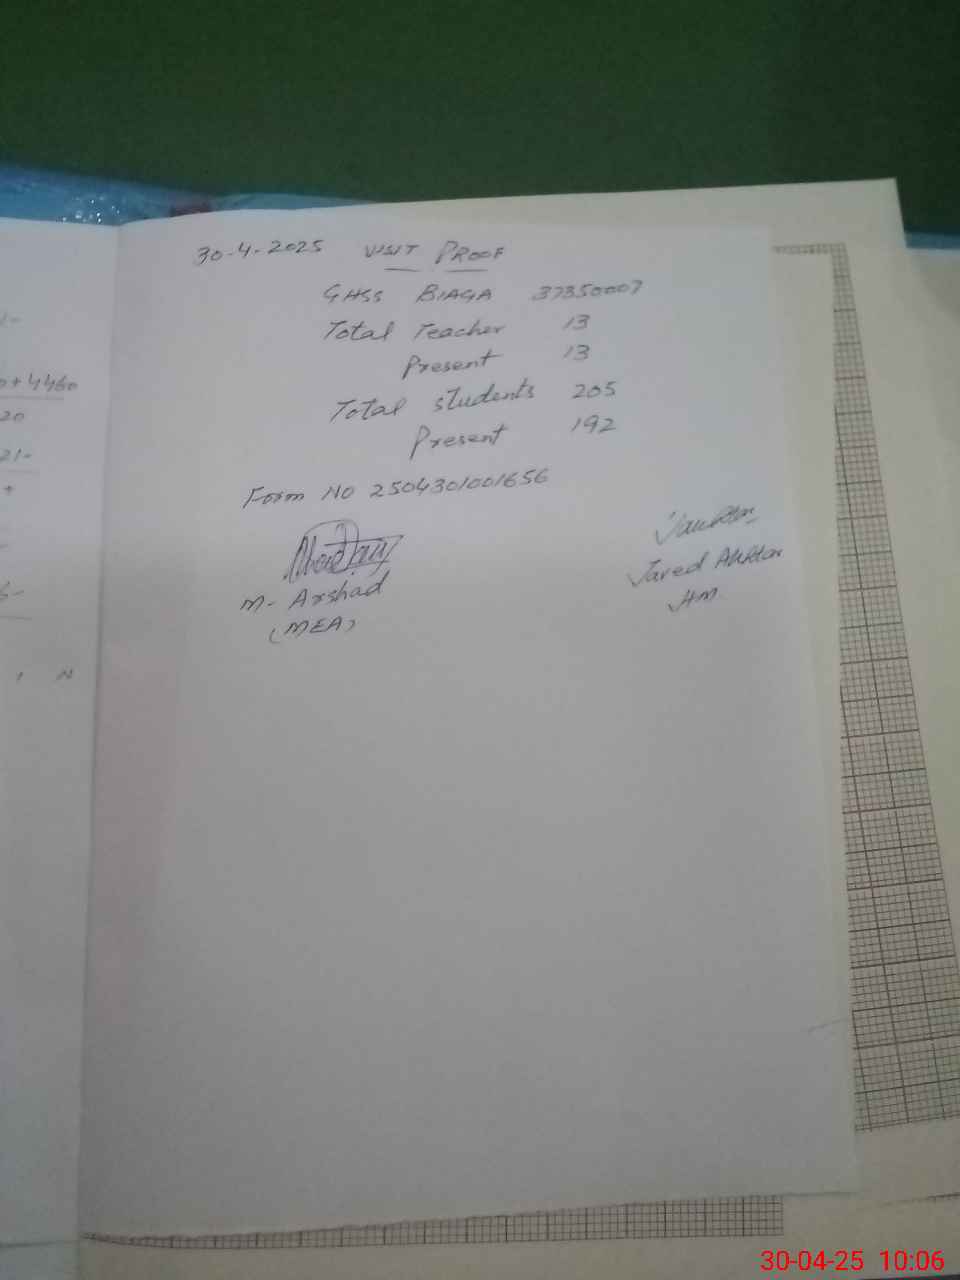 0+4460
20
21-
+
30-4-2025 VISIT PROOF
GHSS BIAGA 37350007
Total Teacher 13
Present 13
Total students 205
Present 192
Form NO 2504301001656
M- Arshad
(MEA)
Javed Akhtar
HM
30-04-25 10:06